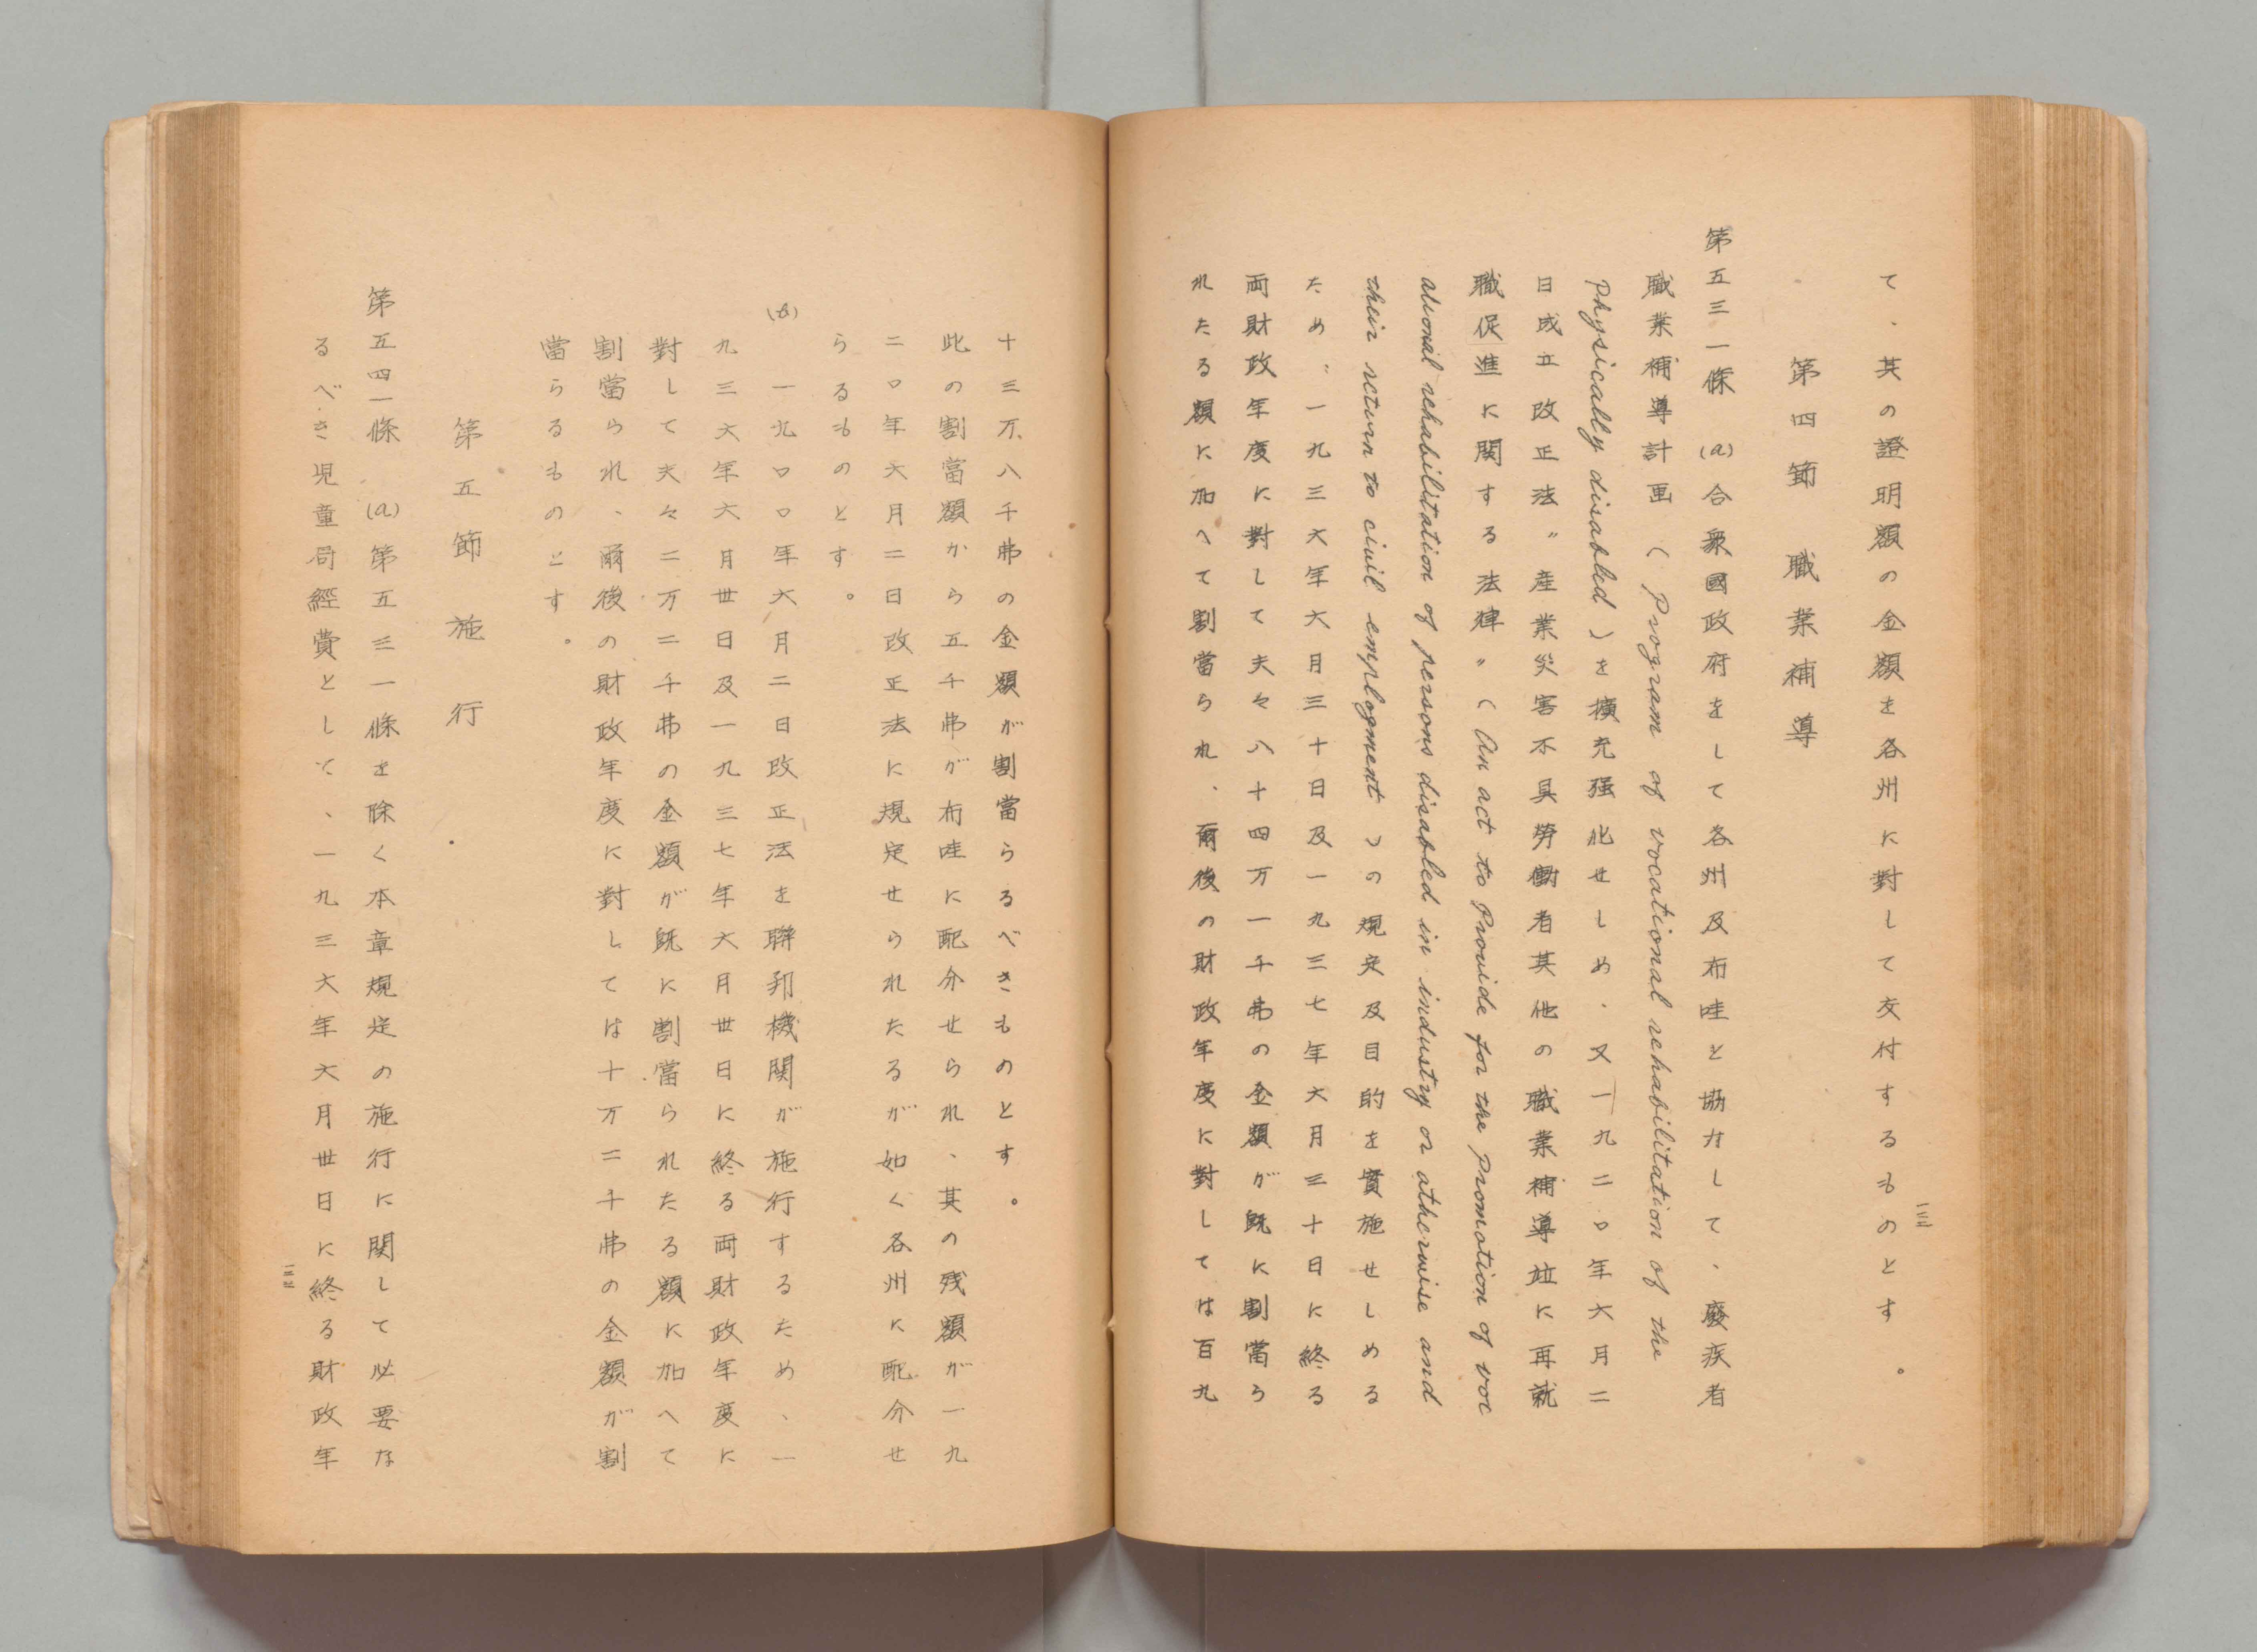 て、其の證明額の金額を各州に對して交付するものとす。
第四節　職業補導
第五三一條　(a)合衆國政府をして各州及布哇と協力して、廢疾者
職業補導計画（Program of vocational rehabilitation of the
Physically disabled）を擴充强化せしめ、又一九二〇年六月二
日成立改正法〃産業災害不具勞働者其他の職業補導竝に再就
職促進に関する法律〃（An act to Provide for the Promotion of voc
ational rehabilitation of persons disabled in industry or otherwise and
their return to civil employment）の規定及目的を實施せしめる
ため〃一九三六年六月三十日及一九三七年六月三十日に終る
両財政年度に對して夫々八十四万一千弗の金額が既に割當ら
れたる額に加へて割當られ、爾後の財政年度に對しては百九
十三万八千弗の金額が割當らるべきものとす。
此の割當額から五千弗が布哇に配分せられ、其の残額が一九
二〇年六月二日改正法に規定せられたるが如く各州に配分せ
らるものとす。
(b)　一九〇〇年六月二日改正法を聯邦機関が施行するため、一
九三六年六月卅日及一九三七年六月卅日に終る両財政年度に
對して夫々二万二千弗の金額が既に割當られたる額に加へて
割當られ、爾後の財政年度に對しては十万二千弗の金額が割
當らるものとす。
第五節　施行
第五四一條　(a)第五三一條を除く本章規定の施行に関して必要な
るべき児童局經費として、一九三六年六月卅日に終る財政年